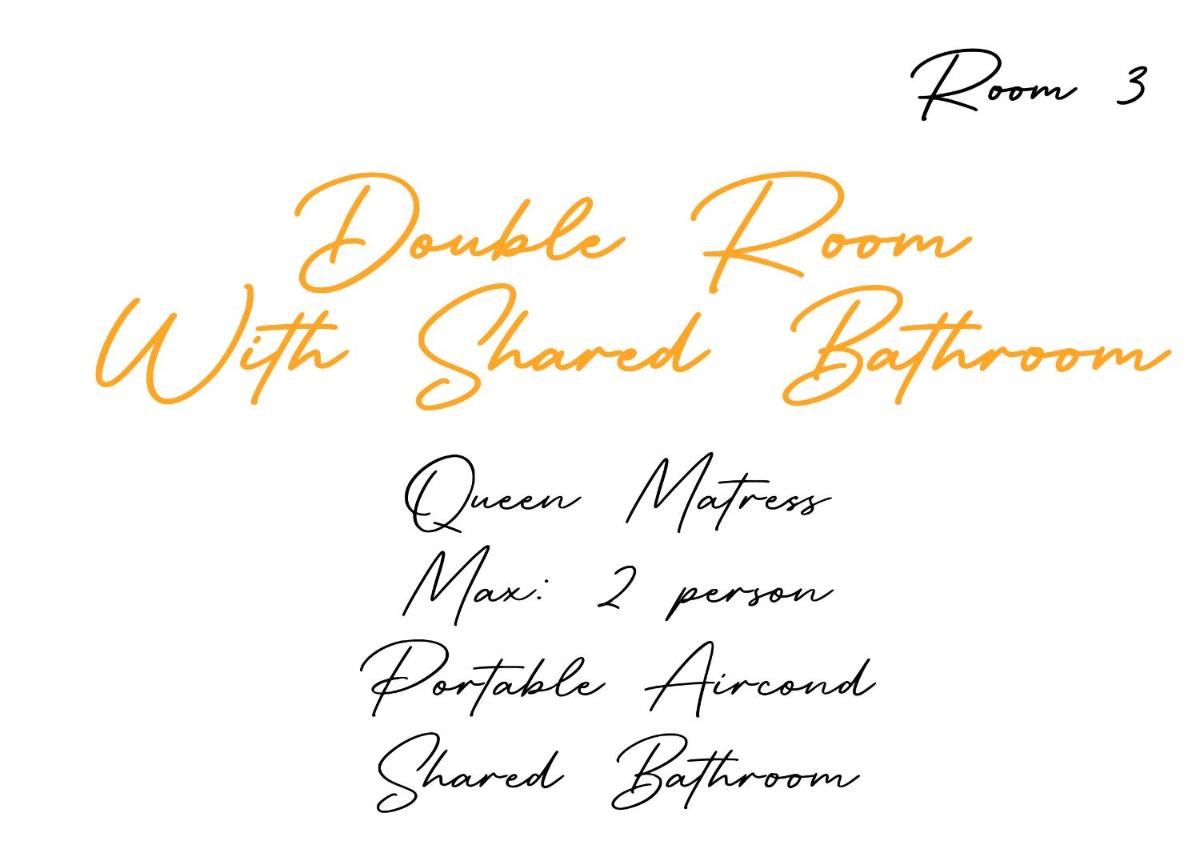 Room 3
Double Room
With Shared Bathroom
Queen Matress
Max: 2 person
Portable Aircond
Shared Bathroom